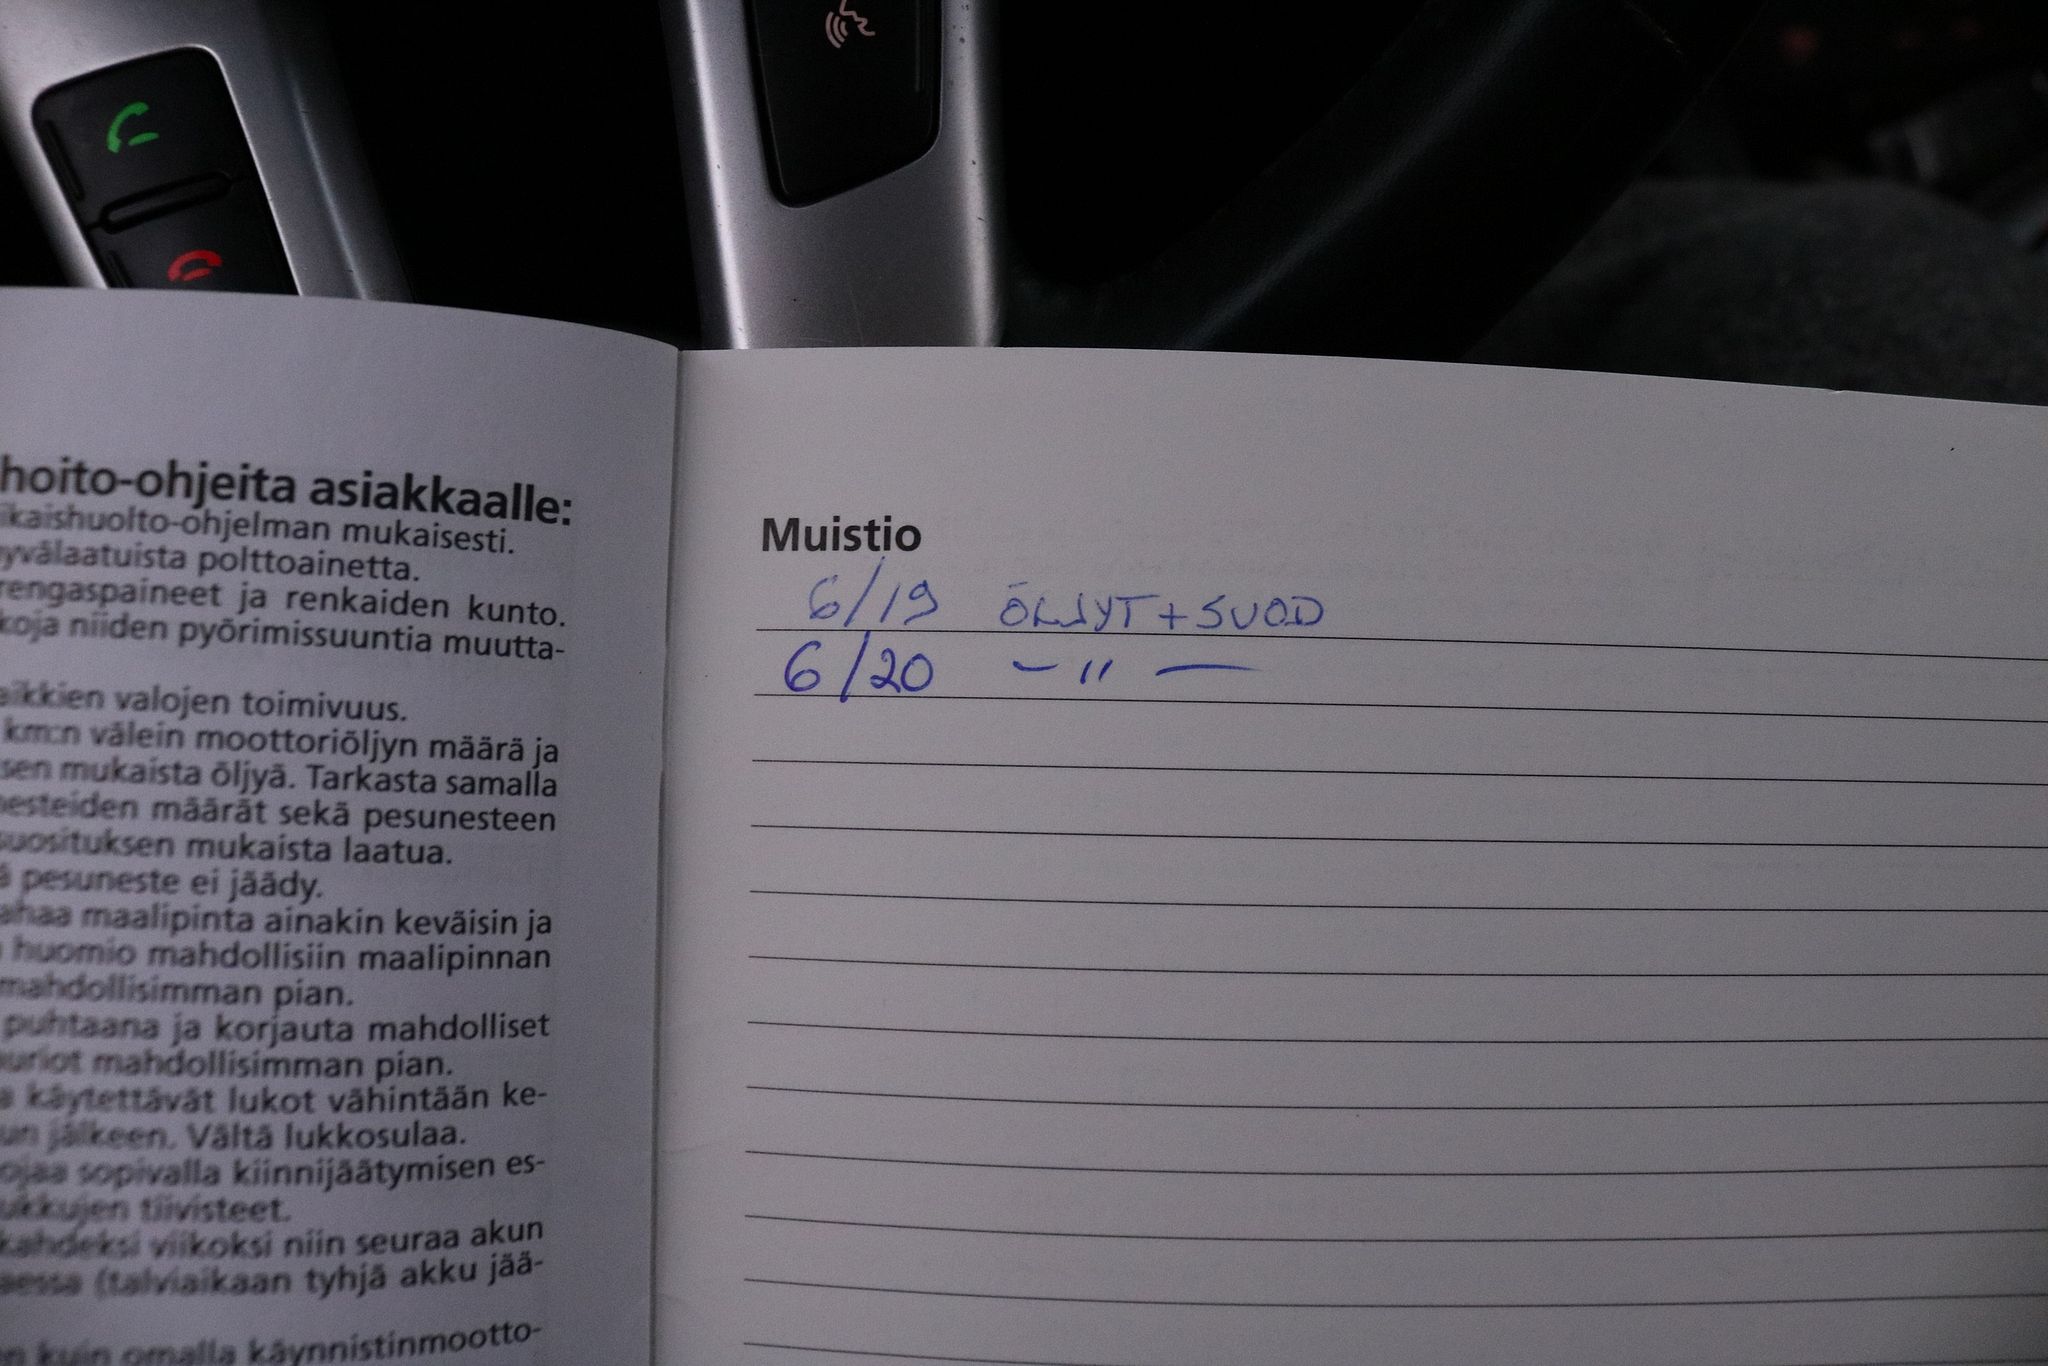 hoito-ohjeita asiakkaalle:
ikaishuolto-ohjelman mukaisesti.
yvälaatuista polttoainetta.
rengaspaineet ja renkaiden kunto.
koja niiden pyörimissuuntia muutta-
aikkien valojen toimivuus.
km:n välein moottoriöljyn määrä ja
sen mukaista öljyä. Tarkasta samalla
nesteiden määrät sekä pesunesteen
suosituksen mukaista laatua.
ä pesuneste ei jäädy.
ahaa maalipinta ainakin keväisin ja
huomio mahdollisiin maalipinnan
mahdollisimman pian.
puhtaana ja korjauta mahdolliset
auriot mahdollisimman pian.
a käytettävät lukot vähintään ke-
un jälkeen. Vältä lukkosulaa.
ojaa sopivalla kiinnijäätymisen es-
ukkujen tiivisteet.
kahdeksi viikoksi niin seuraa akun
aessa (talviaikaan tyhjä akku jää-
en kuin omalla käynnistinmootto-
Muistio
6/19 ÖLJYT + SUOD
6/20 - " -